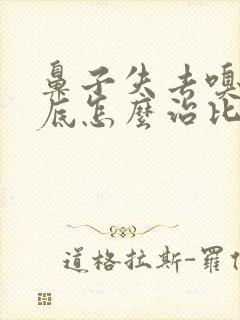 鼻子失去嗅
底怎麼治比
道格拉斯-羅